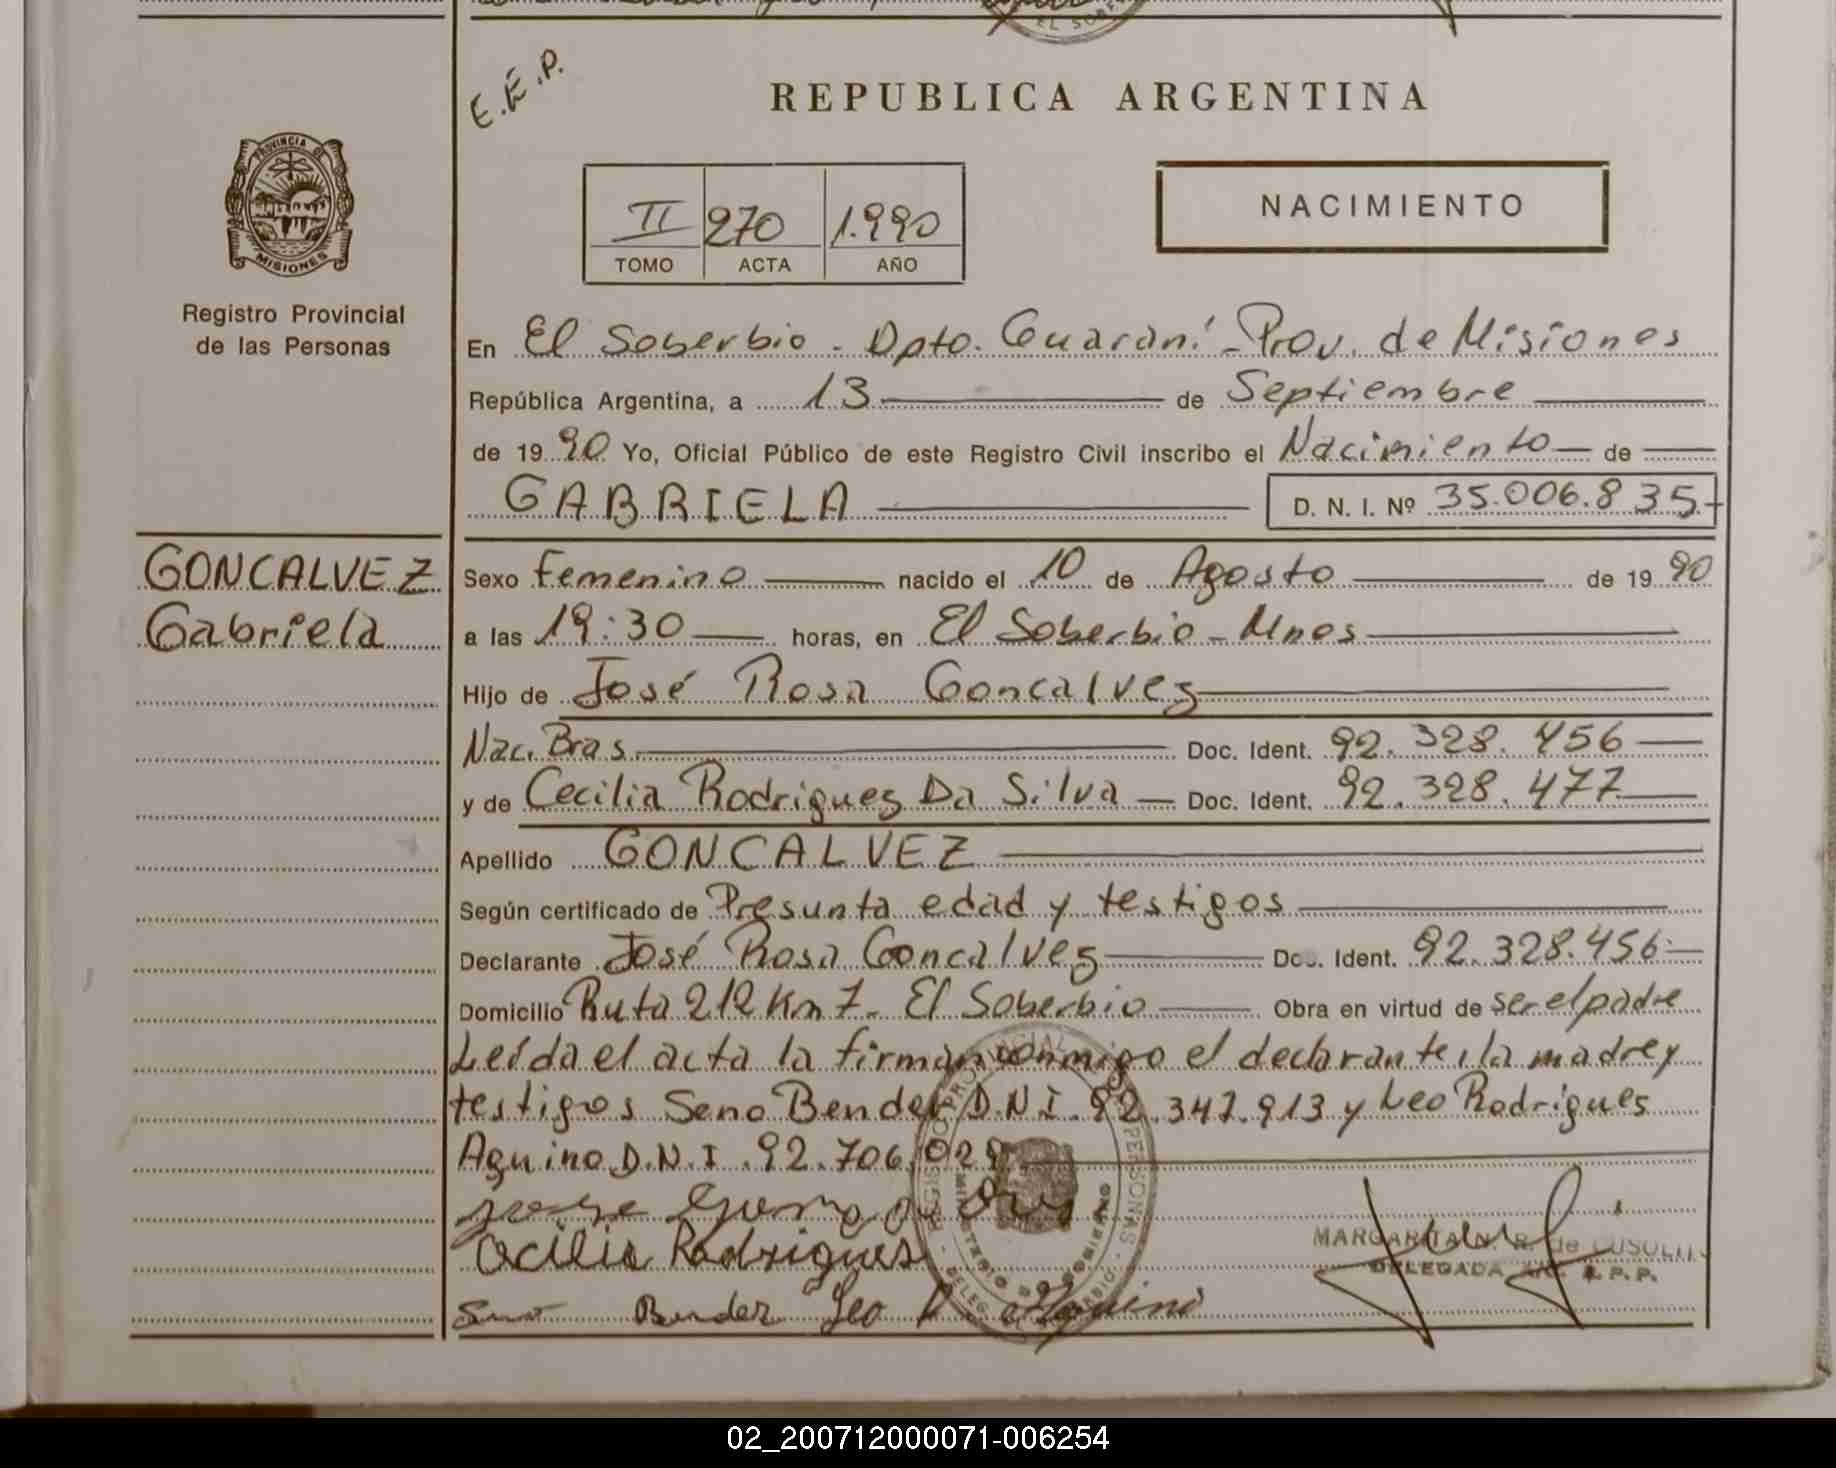 EL SOBER
E.E.P.
REPUBLICA ARGENTINA
PROVINCIA DE
MISIONES
II 270 1.990
TOMO ACTA AÑO
NACIMIENTO
Registro Provincial
de las Personas
En El Soberbio - Dpto. Guaraní - Prov. de Misiones
República Argentina, a 13 de Septiembre
de 19 90 Yo, Oficial Público de este Registro Civil inscribo el Nacimiento de
GABRIELA D. N. I. Nº 35.006.835
GONCALVEZ
Gabriela
Sexo Femenino nacido el 10 de Agosto de 19 90
a las 19:30 horas, en El Soberbio - Mnes
Hijo de José Rosa Goncalvez
Nac. Bras. Doc. Ident. 92.328.456
y de Cecilia Rodriguez Da Silva Doc. Ident. 92.328.477
Apellido GONCALVEZ
Según certificado de Presunta edad y testigos
Declarante José Rosa Goncalvez Doc. Ident. 92.328.456
Domicilio Ruta 212 Km 7 - El Soberbio Obra en virtud de ser el padre
Leída el acta la firman conmigo el declarante, la madre y
testigos Seno Bender D.N.I. 92.347.913 y Leo Rodrigues
Aquino D.N.I. 92.706.029
Cecilia Rodrigues
MARGARITA N. R. de
DELEGADA R.P.P.
Seno Bender Leo R Aquino
02_200712000071-006254